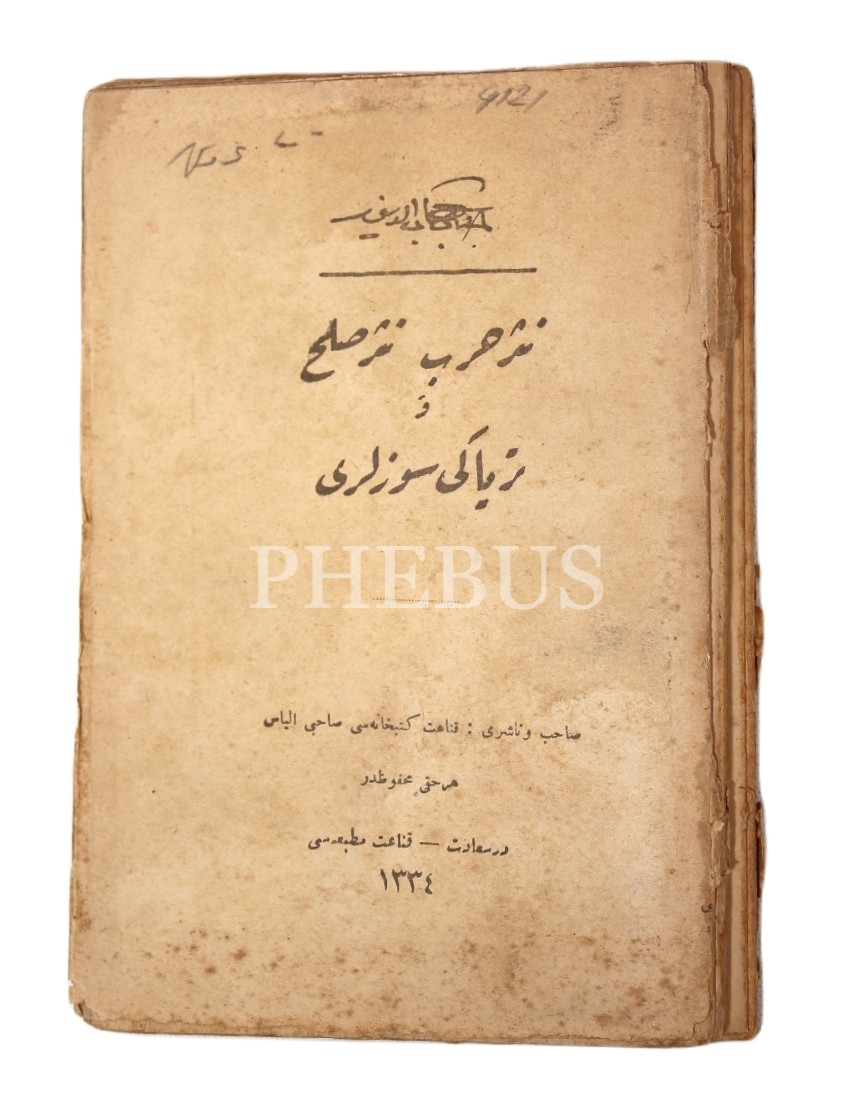 9121
جناب شهاب الدين
نثر حرب نثر صلح
و
ترياكی سوزلری
PHEBUS
صاحب و ناشری : قناعت كتبخانه‌سی صاحبی الياس
هر حقی محفوظدر
درسعادت — قناعت مطبعه‌سی
١٣٣٤